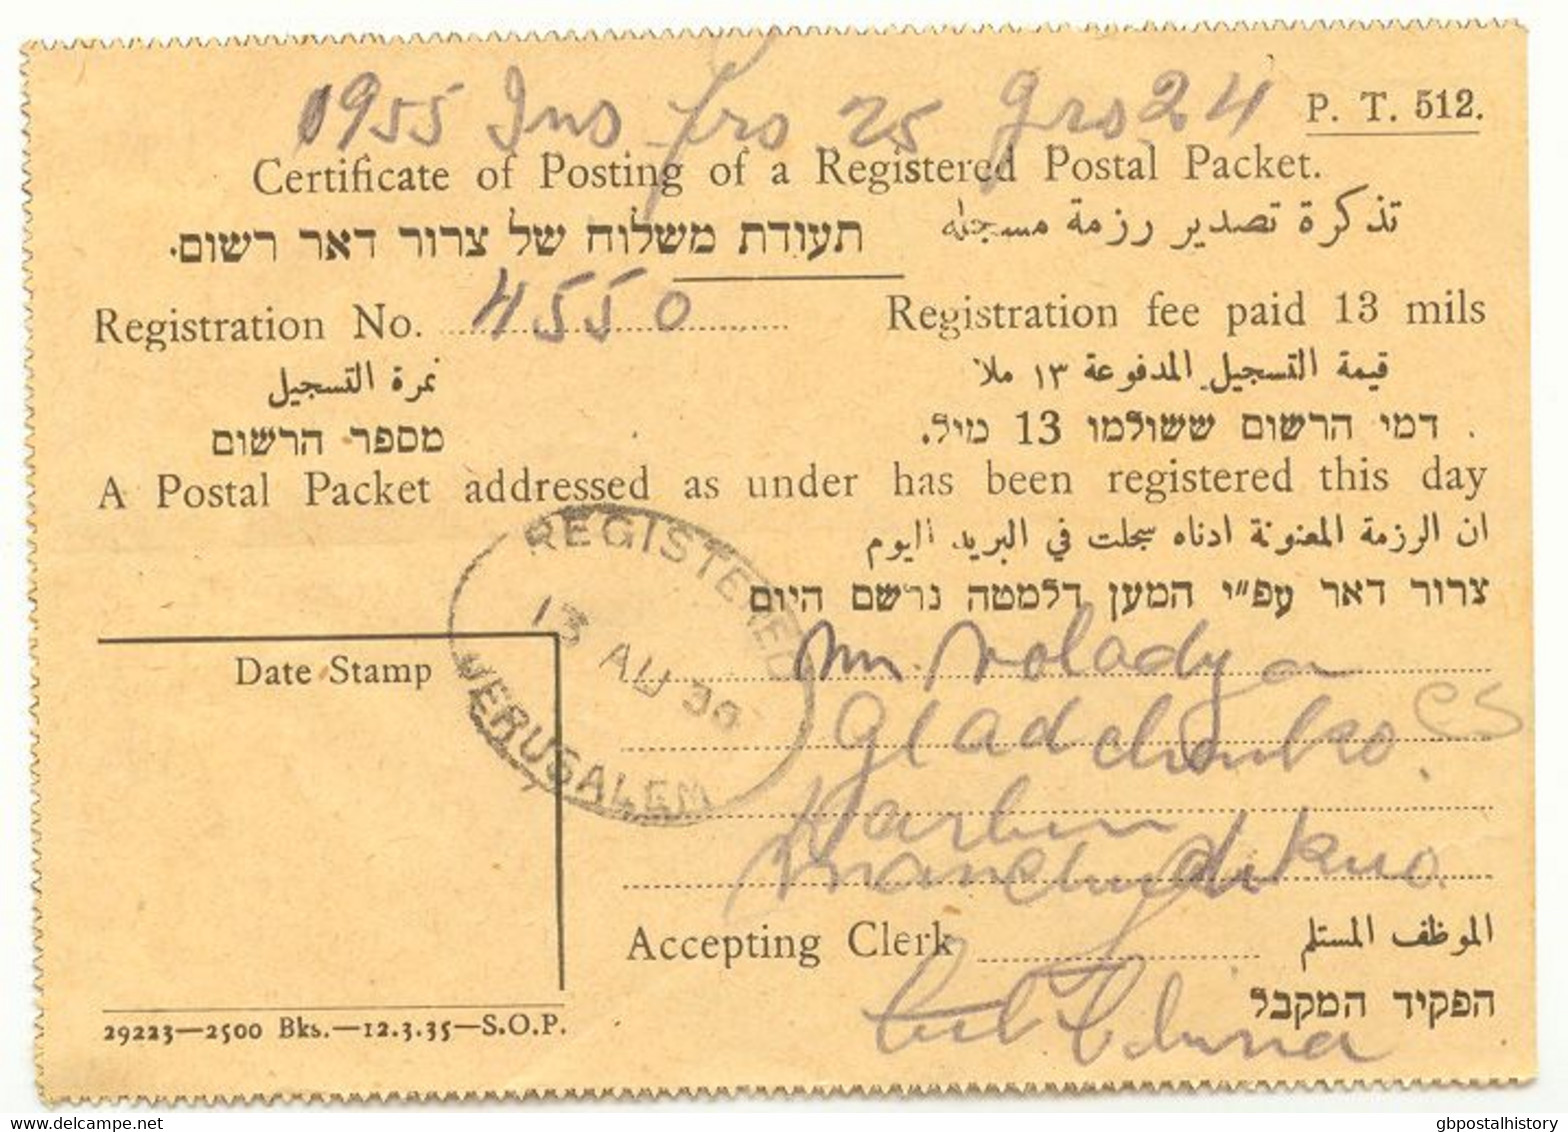 1955 Ins frs 25 grs 24
P. T. 512.
Certificate of Posting of a Registered Postal Packet.
تذكرة تصدير رزمة مسجلة
תעודת משלוח של צרור דאר רשום.
Registration No. 4550
Registration fee paid 13 mils
نمرة التسجيل
قيمة التسجيل المدفوعة ١٣ ملا
מספר הרשום
דמי הרשום ששולמו 13 מיל.
A Postal Packet addressed as under has been registered this day
ان الرزمة المعنونة ادناه سجلت في البريد اليوم
צרור דאר עפ״י המען דלמטה נרשם היום
REGISTERED
13 AU 36
JERUSALEM
Date Stamp
Gladchenko
Harbin
Manchudikuo.
Accepting Clerk
الموظف المستلم
הפקיד המקבל
China
29223—2500 Bks.—12.3.35—S.O.P.
www.delcampe.net
gbpostalhistory